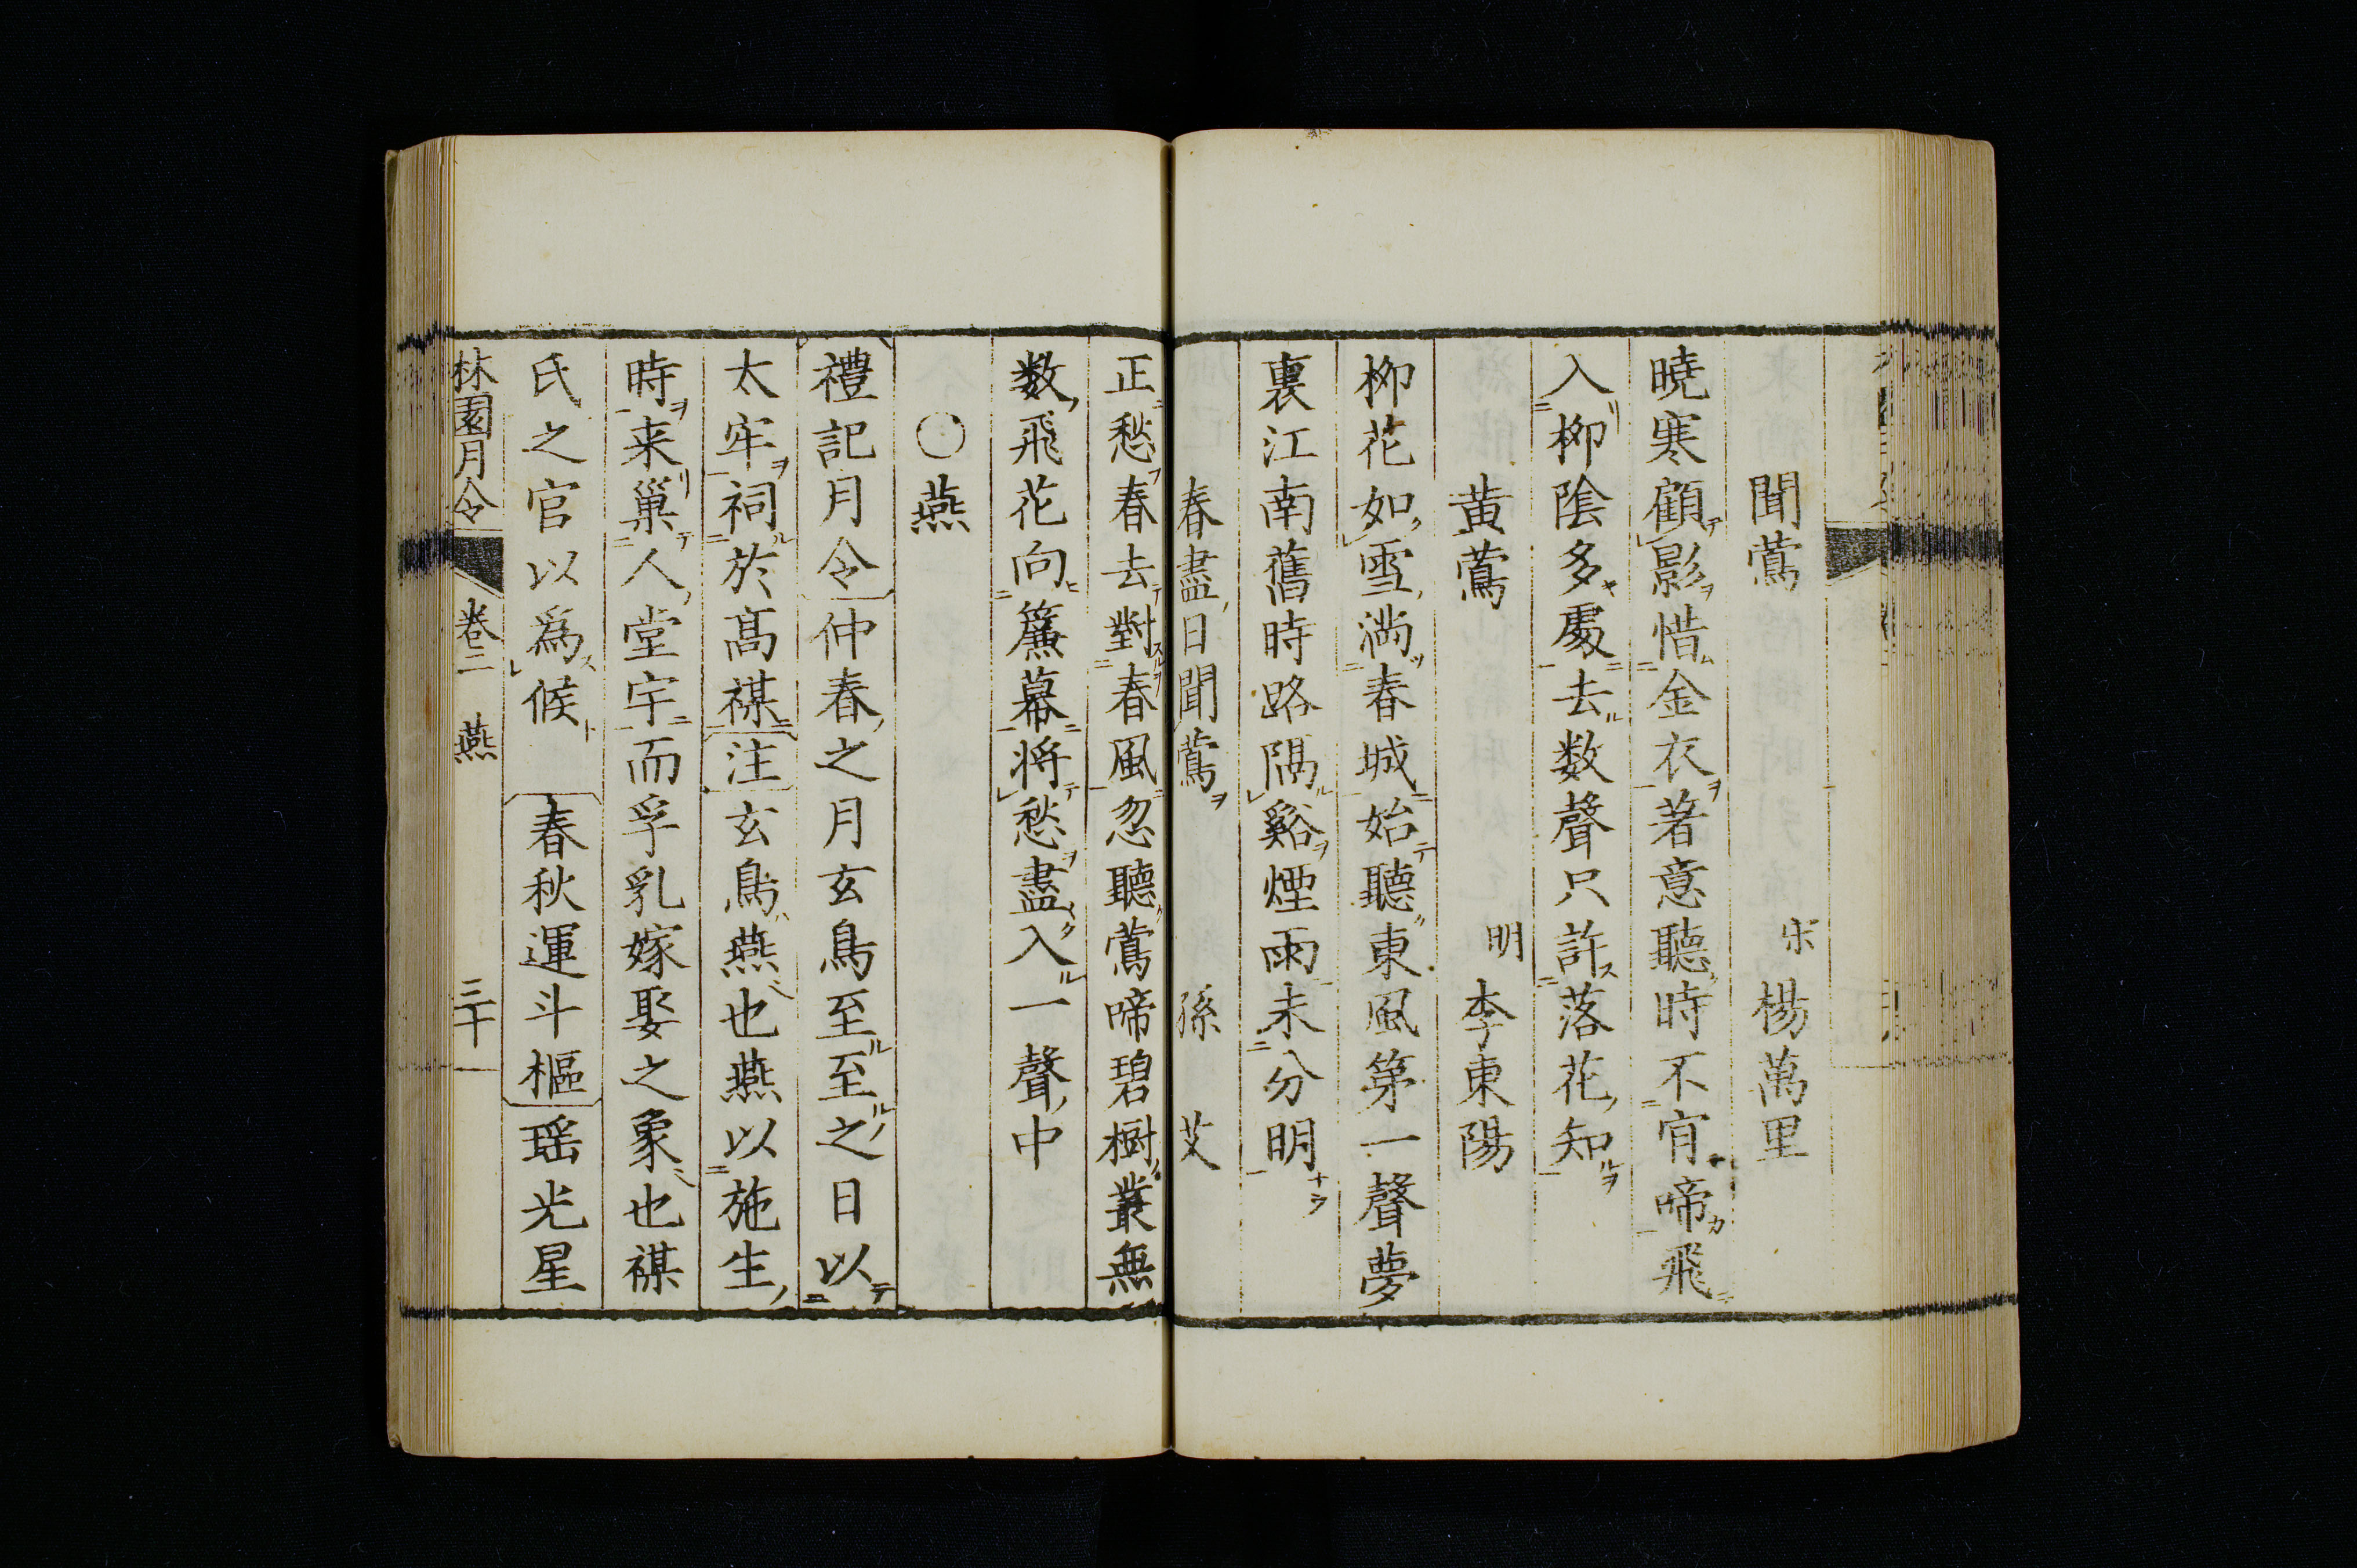 聞鶯　宋　楊萬里
曉寒顧影惜金衣著意聽時不肎啼飛
入柳陰多處去数聲只許落花知
黄鶯　明　李東陽
柳花如雪滿春城始聽東風第一聲夢
裏江南舊時路隔谿煙雨未分明
春盡日聞鶯　孫　艾
正愁春去對春風忽聽鶯啼碧樹叢無
数飛花向簾幕将愁盡入一聲中
○燕
禮記月令仲春之月玄鳥至至之日以
太牢祠於髙禖注玄鳥燕也燕以施生
時来巢人堂宇而孚乳嫁娶之象也禖
氏之官以爲候　春秋運斗樞瑶光星
林園月令　卷二　燕　三十一